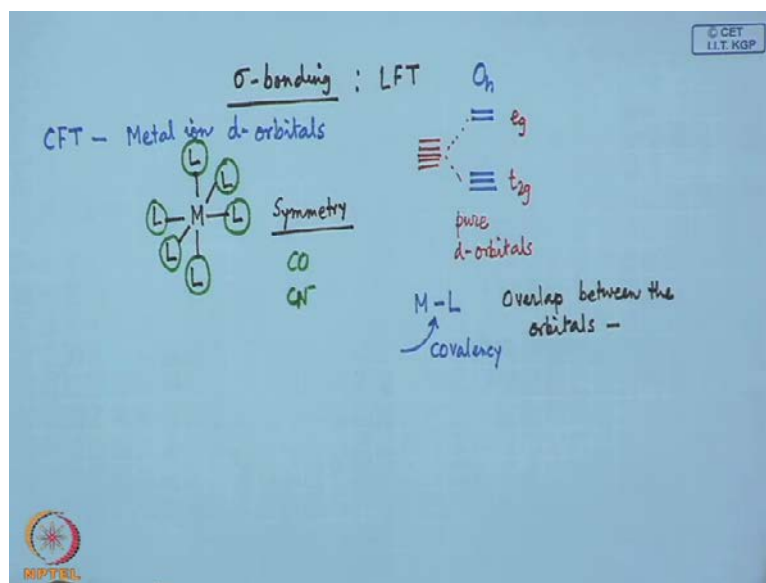 © CET
I.I.T. KGP
σ-bonding : LFT
O_h
CFT - Metal ion d-orbitals
e_g
t_2g
pure
d-orbitals
L
L
L
M
L
L
L
Symmetry
CO
CN⁻
M-L
covalency
Overlap between the
orbitals -
NPTEL